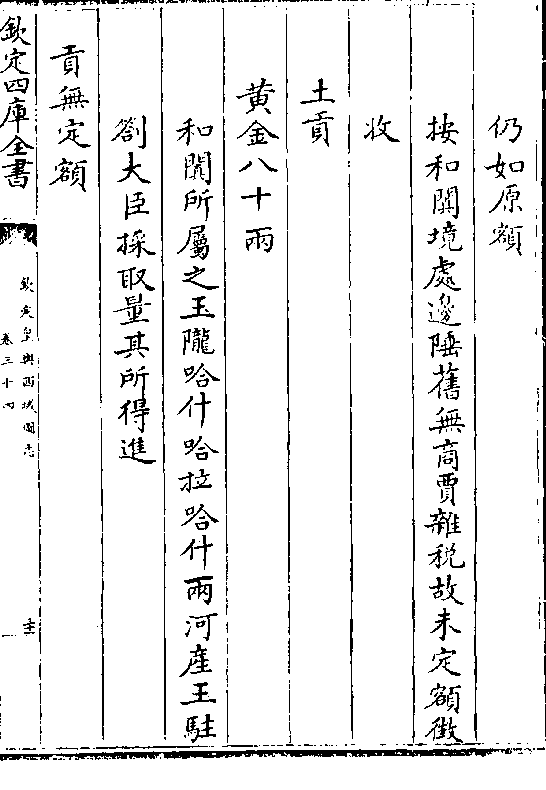 仍如原額
按和闐境處邊陲舊無商賈雜税故未定額徴
收
土貢
黄金八十兩
和闐所屬之玉隴哈什哈拉哈什兩河産玉駐
劄大臣採取量其所得進
貢無定額
欽定四庫全書
欽定皇輿西域圖志
卷三十四